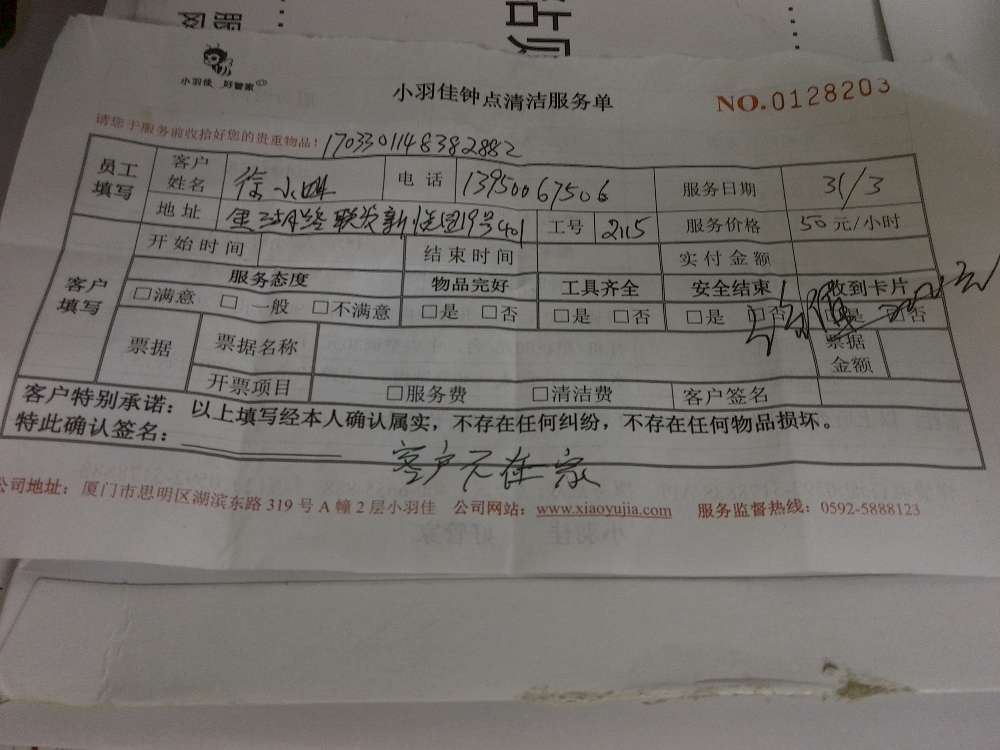 小羽佳 好管家
小羽佳钟点清洁服务单
NO.0128203
请您于服务前收拾好您的贵重物品!
1703301148382882
员工填写 客户姓名 徐小 电话 13950067506 服务日期 31/3
地址 联发新 19号401 工号 2115 服务价格 50元/小时
客户填写 开始时间 结束时间 实付金额
服务态度 物品完好 工具齐全 安全结束 收到卡片
□满意 □一般 □不满意 □是 □否 □是 □否 □是 □否 □是 □否
票据 票据名称 票据金额
开票项目 □服务费 □清洁费 客户签名
客户特别承诺：以上填写经本人确认属实，不存在任何纠纷，不存在任何物品损坏。
特此确认签名：
客户不在家
公司地址：厦门市思明区湖滨东路319号A幢2层小羽佳 公司网站：www.xiaoyujia.com 服务监督热线：0592-5888123